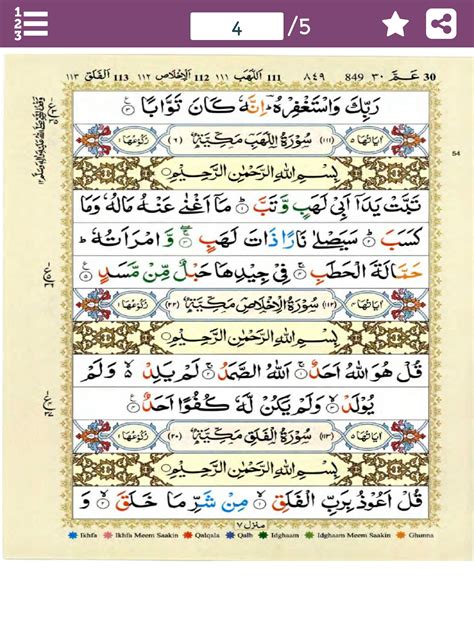 4 /5
113 الفلق ١١٣ 112 الاخلاص ١١٢ 111 اللهب ١١١ ٨٤٩ 849 ٣٠ عم 30
رَبِّكَ وَاسْتَغْفِرْهُ ؔ اِنَّهٗ كَانَ تَوَّابًا ۟
اٰیَاتُهَا ٥ (١١١) سُوْرَةُ اللَّهَبِ مَكِّيَّةٌ (٦) رُكُوْعُهَا ١
بِسْمِ اللّٰهِ الرَّحْمٰنِ الرَّحِيْمِ
تَبَّتْ يَدَاۤ اَبِيْ لَهَبٍ وَّتَبَّ ؕ ١ مَاۤ اَغْنٰى عَنْهُ مَالُهٗ وَمَا
كَسَبَ ؕ ٢ سَيَصْلٰى نَارًا ذَاتَ لَهَبٍ ۚ ٣ وَّامْرَاَتُهٗ ؕ
حَمَّالَةَ الْحَطَبِ ۚ ٤ فِيْ جِيْدِهَا حَبْلٌ مِّنْ مَّسَدٍ ٥
اٰیَاتُهَا ٤ (١١٢) سُوْرَةُ الْاِخْلَاصِ مَكِّيَّةٌ (٢٢) رُكُوْعُهَا ١
بِسْمِ اللّٰهِ الرَّحْمٰنِ الرَّحِيْمِ
قُلْ هُوَ اللّٰهُ اَحَدٌ ۚ ١ اَللّٰهُ الصَّمَدُ ۚ ٢ لَمْ يَلِدْ ۙ۬ وَلَمْ
يُوْلَدْ ۙ ٣ وَلَمْ يَكُنْ لَّهٗ كُفُوًا اَحَدٌ ٤
اٰیَاتُهَا ٥ (١١٣) سُوْرَةُ الْفَلَقِ مَكِّيَّةٌ (٢٠) رُكُوْعُهَا ١
بِسْمِ اللّٰهِ الرَّحْمٰنِ الرَّحِيْمِ
قُلْ اَعُوْذُ بِرَبِّ الْفَلَقِ ۙ ١ مِنْ شَرِّ مَا خَلَقَ ۙ ٢ وَ
منزل ٧
Ikhfa Ikhfa Meem Saakin Qalqala Qalb Idghaam Idghaam Meem Saakin Ghunna
54